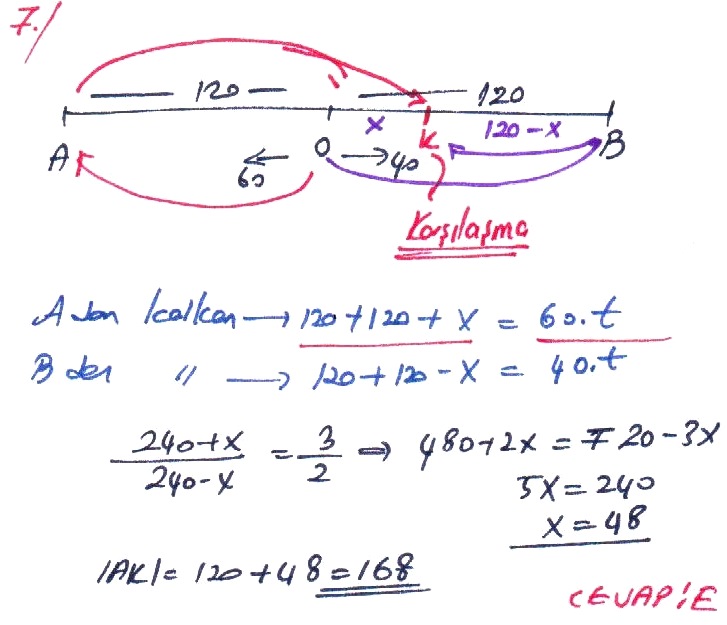 7./
120 120
x 120-x
A 60 O 40 K B
Karşılaşma
A dan kalkan → 120+120+x = 60.t
B den " → 120+120-x = 40.t
240+x / 240-x = 3/2 ⇒ 480+2x = 720-3x
5x = 240
x = 48
|AK| = 120+48 = 168
CEVAP:E